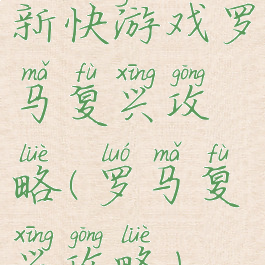 新快游戏罗
mǎ fù xīng gōng
马复兴攻
lüè luó mǎ fù
略(罗马复
xīng gōng lüè
兴攻略)